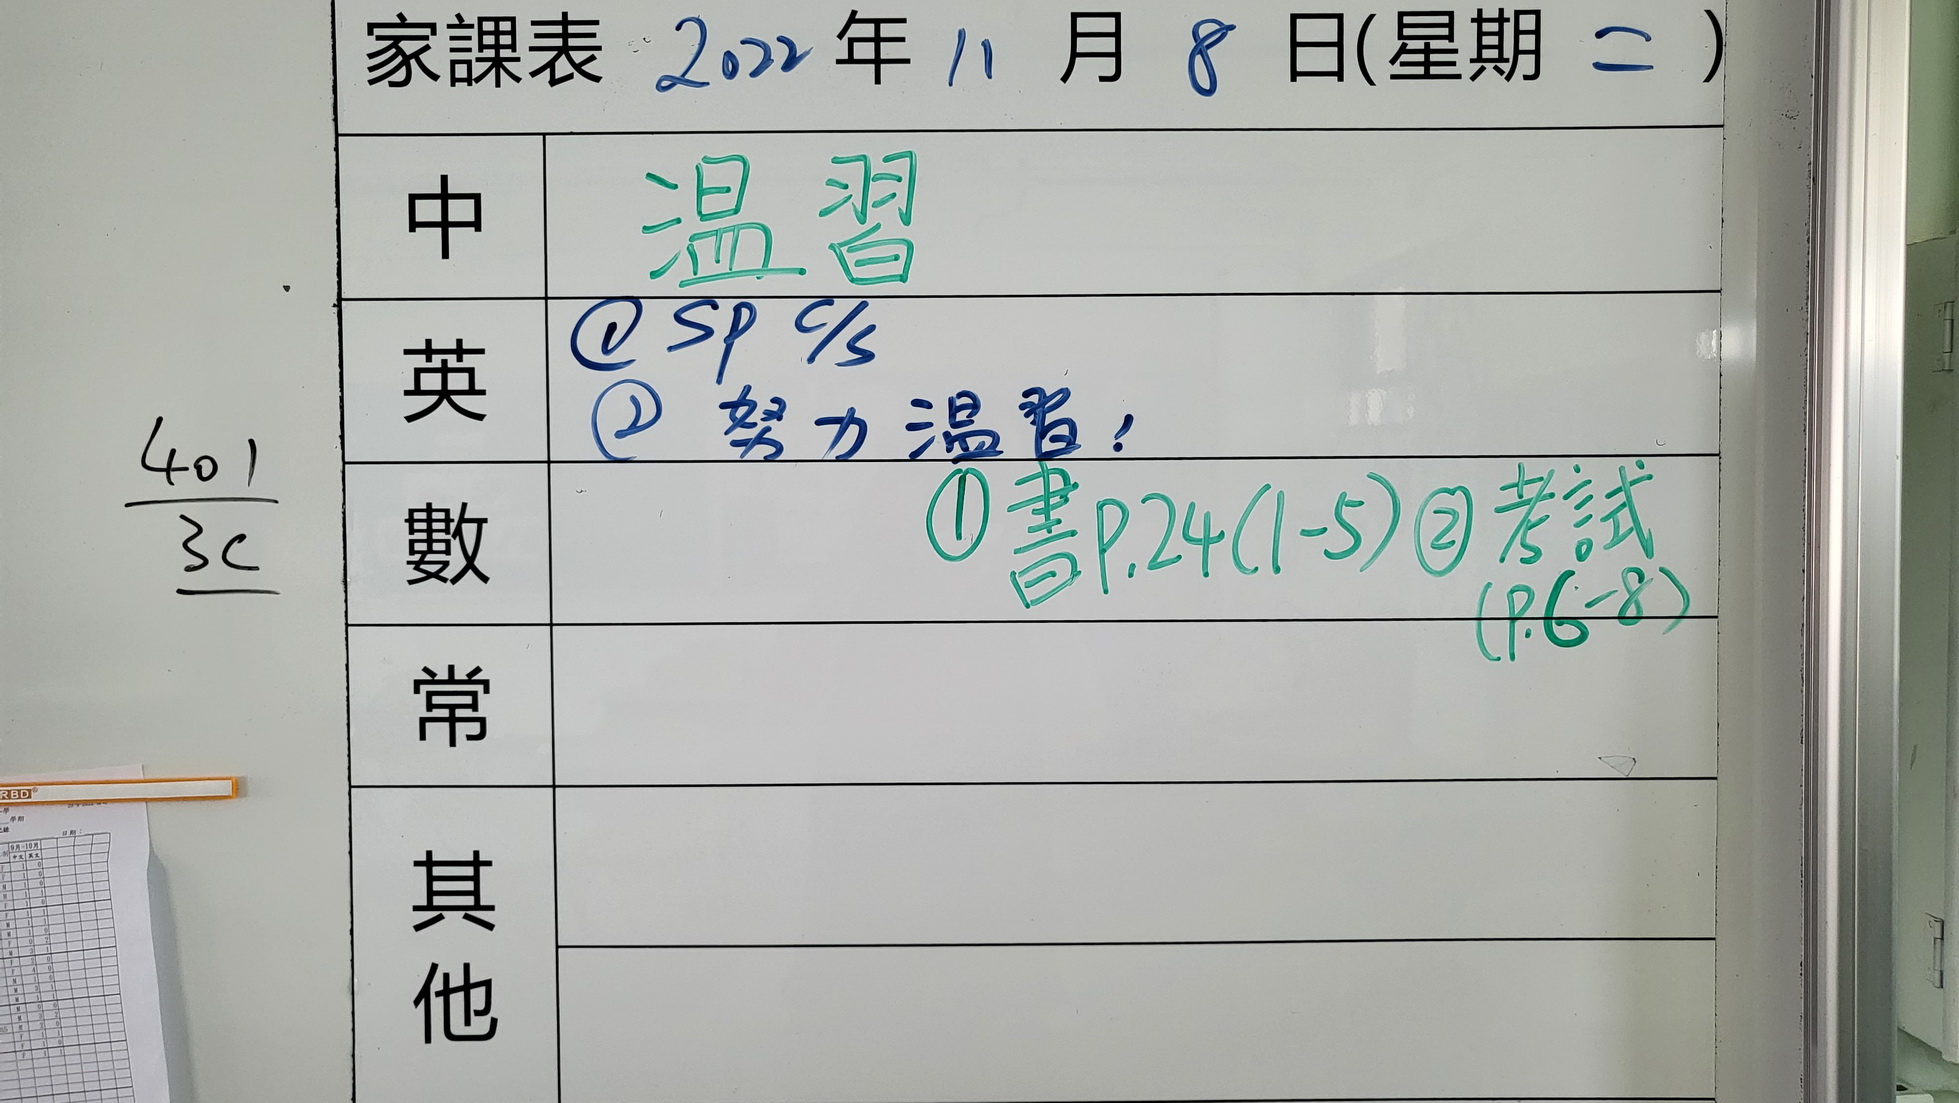 家課表 2022 年 11 月 8 日(星期 二 )
中 温習
英 ① Sp c/s
② 努力温習!
數 ① 書P.24(1-5) ② 考試
(P.6-8)
常
其他
401
3C
RBD
學期
日期:
9月-10月
中文 英文